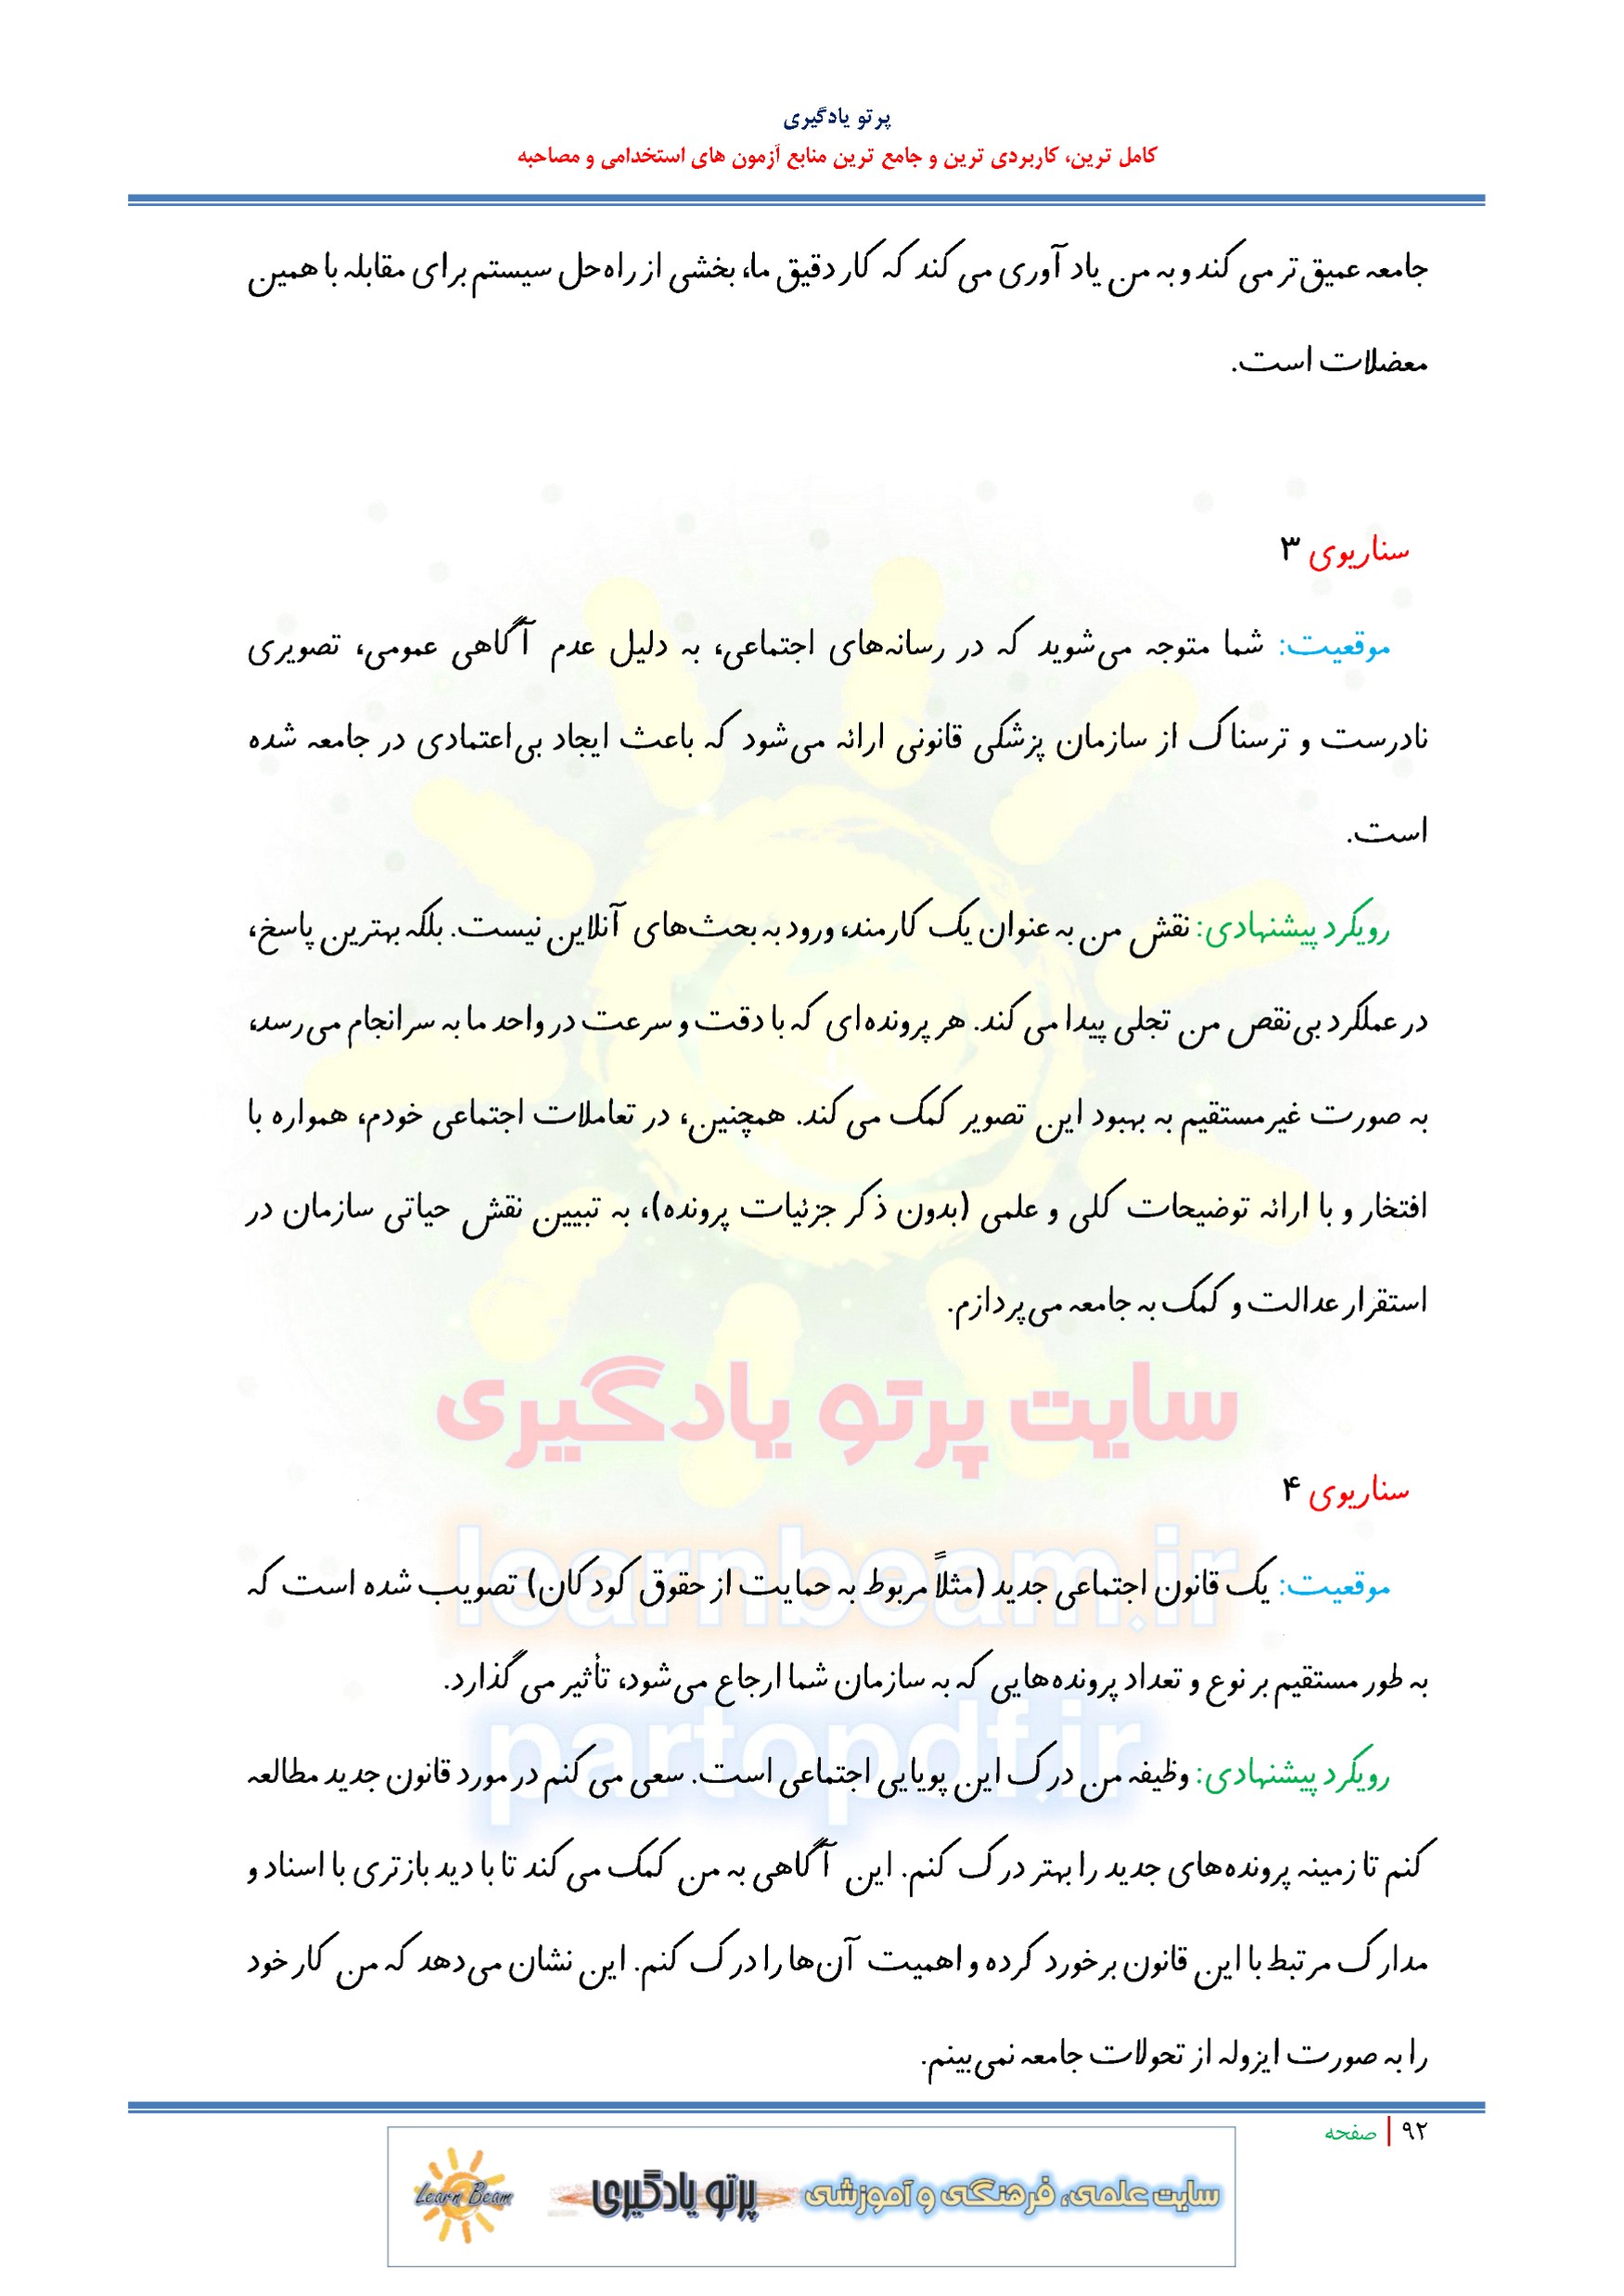 پرتو یادگیری
کامل ترین، کاربردی ترین و جامع ترین منابع آزمون های استخدامی و مصاحبه
جامعه عمیق‌تر می کند و به من یاد آوری می کند که کار دقیق ما، بخشی از راه‌حل سیستم برای مقابله با همین
معضلات است.
سناریوی ۳
موقعیت: شما متوجه می‌شوید که در رسانه‌های اجتماعی، به دلیل عدم آگاهی عمومی، تصویری
نادرست و ترسناک از سازمان پزشکی قانونی ارائه می‌شود که باعث ایجاد بی‌اعتمادی در جامعه شده
است.
رویکرد پیشنهادی: نقش من به عنوان یک کارمند، ورود به بحث‌های آنلاین نیست. بلکه بهترین پاسخ،
در عملکرد بی‌نقص من تجلی پیدا می کند. هر پرونده‌ای که با دقت و سرعت در واحد ما به سرانجام می‌رسد،
به صورت غیرمستقیم به بهبود این تصویر کمک می کند. همچنین، در تعاملات اجتماعی خودم، همواره با
افتخار و با ارائه توضیحات کلی و علمی (بدون ذکر جزئیات پرونده)، به تبیین نقش حیاتی سازمان در
استقرار عدالت و کمک به جامعه می‌پردازم.
سایت پرتو یادگیری
سناریوی ۴
learnbeam.ir
موقعیت: یک قانون اجتماعی جدید (مثلاً مربوط به حمایت از حقوق کودکان) تصویب شده است که
به طور مستقیم بر نوع و تعداد پرونده‌هایی که به سازمان شما ارجاع می‌شود، تأثیر می گذارد.
partopdf.ir
رویکرد پیشنهادی: وظیفه من درک این پویایی اجتماعی است. سعی می کنم در مورد قانون جدید مطالعه
کنم تا زمینه پرونده‌های جدید را بهتر درک کنم. این آگاهی به من کمک می کند تا با دید بازتری با اسناد و
مدارک مرتبط با این قانون برخورد کرده و اهمیت آن‌ها را درک کنم. این نشان می‌دهد که من کار خود
را به صورت ایزوله از تحولات جامعه نمی‌بینم.
۹۲ | صفحه
سایت علمی، فرهنگی و آموزشی پرتو یادگیری Learn Beam